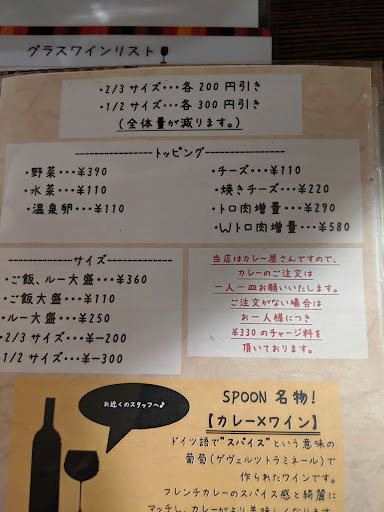 グラスワインリスト
・2/3 サイズ・・・各 200 円引き
・1/2 サイズ・・・各 300 円引き
(全体量が減ります。)
-----------------トッピング-----------------
・野菜・・・¥390
・水菜・・・¥110
・温泉卵・・・¥110
・チーズ・・・¥110
・焼きチーズ・・・¥220
・トロ肉増量・・・¥290
・Wトロ肉増量・・・¥580
--------------サイズ--------------
・ご飯、ルー大盛・・・¥360
・ご飯大盛・・・¥110
・ルー大盛・・・¥250
・2/3 サイズ・・・¥-200
・1/2 サイズ・・・¥-300
当店はカレー屋さんですので、
カレーのご注文は
一人一皿お願いいたします。
ご注文がない場合は
お一人様につき
¥330 のチャージ料を
頂いております。
お近くのスタッフへ♪
SPOON 名物!
【カレー×ワイン】
ドイツ語で"スパイス"という意味の
葡萄(ゲヴェルツトラミネール)で
作られたワインです。
フレンチカレーのスパイス感と綺麗に
マッチし、カレーがより美味しくなります